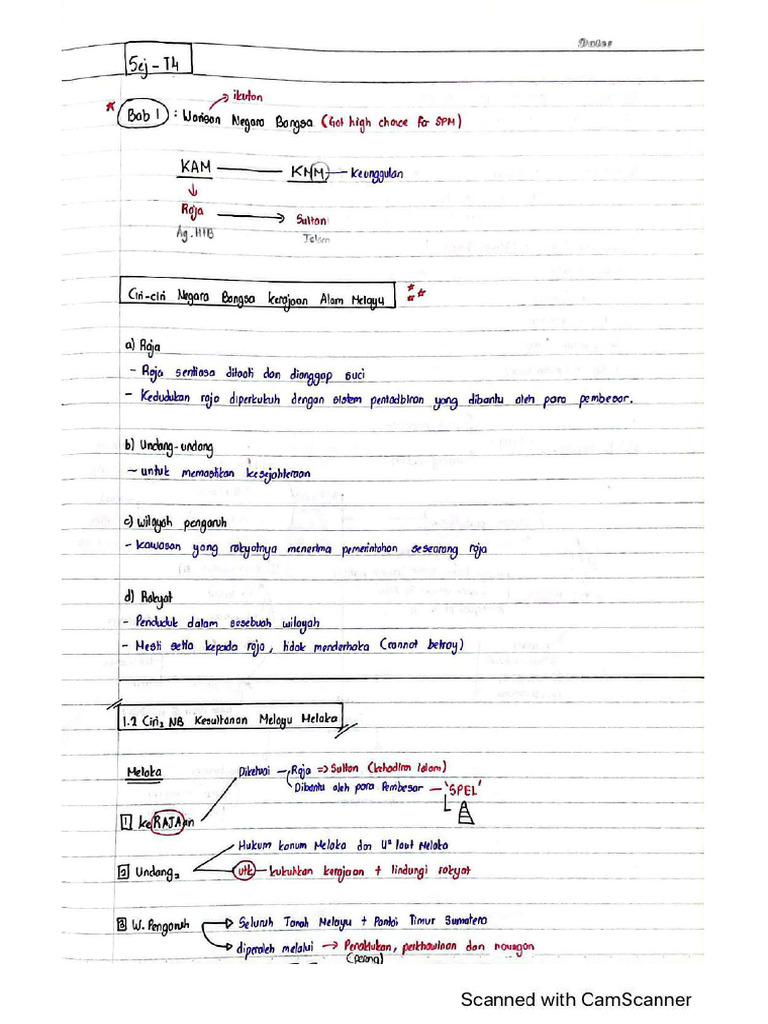 Date:
Sej - T4
ikutan
* Bab 1 : Warisan Negara Bangsa (Got high chance for SPM)
KAM — KMM — Keunggulan
Raja → Sultan
Ag. HTB Islam
Ciri-ciri Negara Bangsa Kerajaan Alam Melayu
a) Raja
- Raja sentiasa ditaati dan dianggap suci
- Kedudukan raja diperkukuh dengan sistem pentadbiran yang dibantu oleh para pembesar.
b) Undang-undang
- untuk memastikan kesejahteraan
c) Wilayah pengaruh
- kawasan yang rakyatnya menerima pemerintahan seseorang raja
d) Rakyat
- Penduduk dalam sesebuah wilayah
- Mesti setia kepada raja, tidak menderhaka (cannot betray)
1.2 Ciri2 NB Kesultanan Melayu Melaka
Melaka
Diketuai — Raja => Sultan (kehadiran Islam)
Dibantu oleh para Pembesar — 'SPEL'
1 keRAJAan
Hukum kanun Melaka dan U² laut Melaka
2 Undang2
utk — kukuhkan kerajaan + lindungi rakyat
3 W. Pengaruh → Seluruh Tanah Melayu + Pantai Timur Sumatera
diperoleh melalui → Penaklukan, perkahwinan dan naungan
(perang)
Scanned with CamScanner